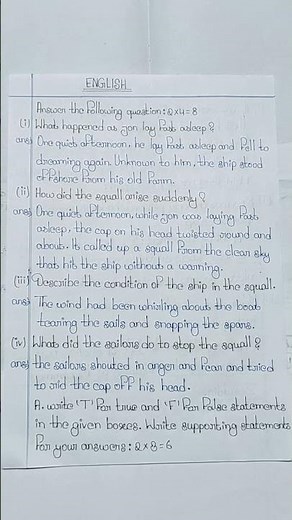 ENGLISH
Answer the following question: 2x4=8
(i) What happened as jon lay fast asleep?
ans) One quiet afternoon, he lay fast asleep and fell to
dreaming again. Unknown to him, the ship stood
offshore from his old farm.
(ii) How did the squall arise suddenly?
ans) One quiet afternoon, while jon was laying fast
asleep, the cap on his head twisted round and
about. Its called up a squall from the clean sky
that hits the ship without a warning.
(iii) Describe the condition of the ship in the squall.
ans) The wind had been whirling about the boat
tearing the sails and snapping the spars.
(iv) What did the sailors do to stop the squall?
ans) the sailors shouted in anger and fear and tried
to rid the cap off his head.
A. write 'T' for true and 'F' for false statements
in the given boxes. Write supporting statements
for your answers: 2x8=6